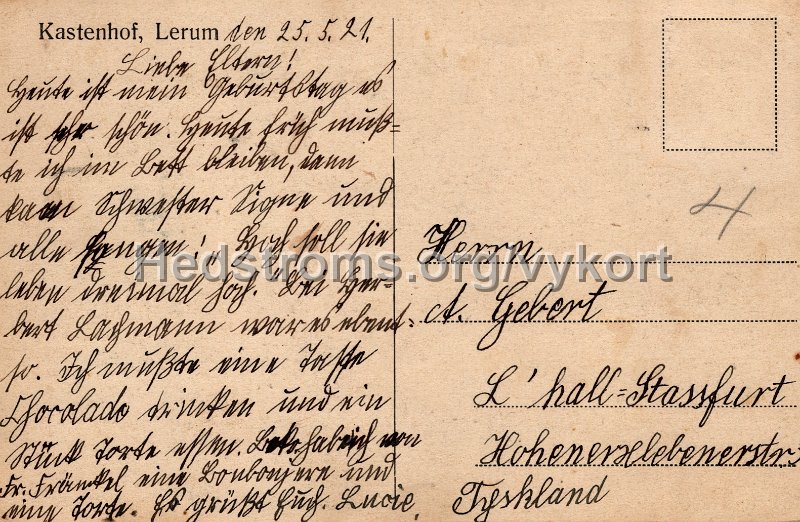 Kastenhof, Lerum den 25.5.21.
Liebe Eltern!
Heute ist mein Geburtstag es
ist sehr schön. Heute früh muß=
te ich im Bett bleiben, dann
kam Schwester Signe und
alle sangen: „Hoch soll sie
leben dreimal hoch. Bei Her-
bert Lachmann war es eben-
so. Ich mußte eine Tasse
Chocolade trinken und ein
Stück Torte essen. hab ich von
Fr. Fränkel eine Bonboniere und
eine Torte. Es grüßt Euch. Lucie.
4
Herrn
A. Gebert
L'hall=Stassfurt
Hohenerxlebenerstr.
Tyskland
Hedstroms.org/vykort